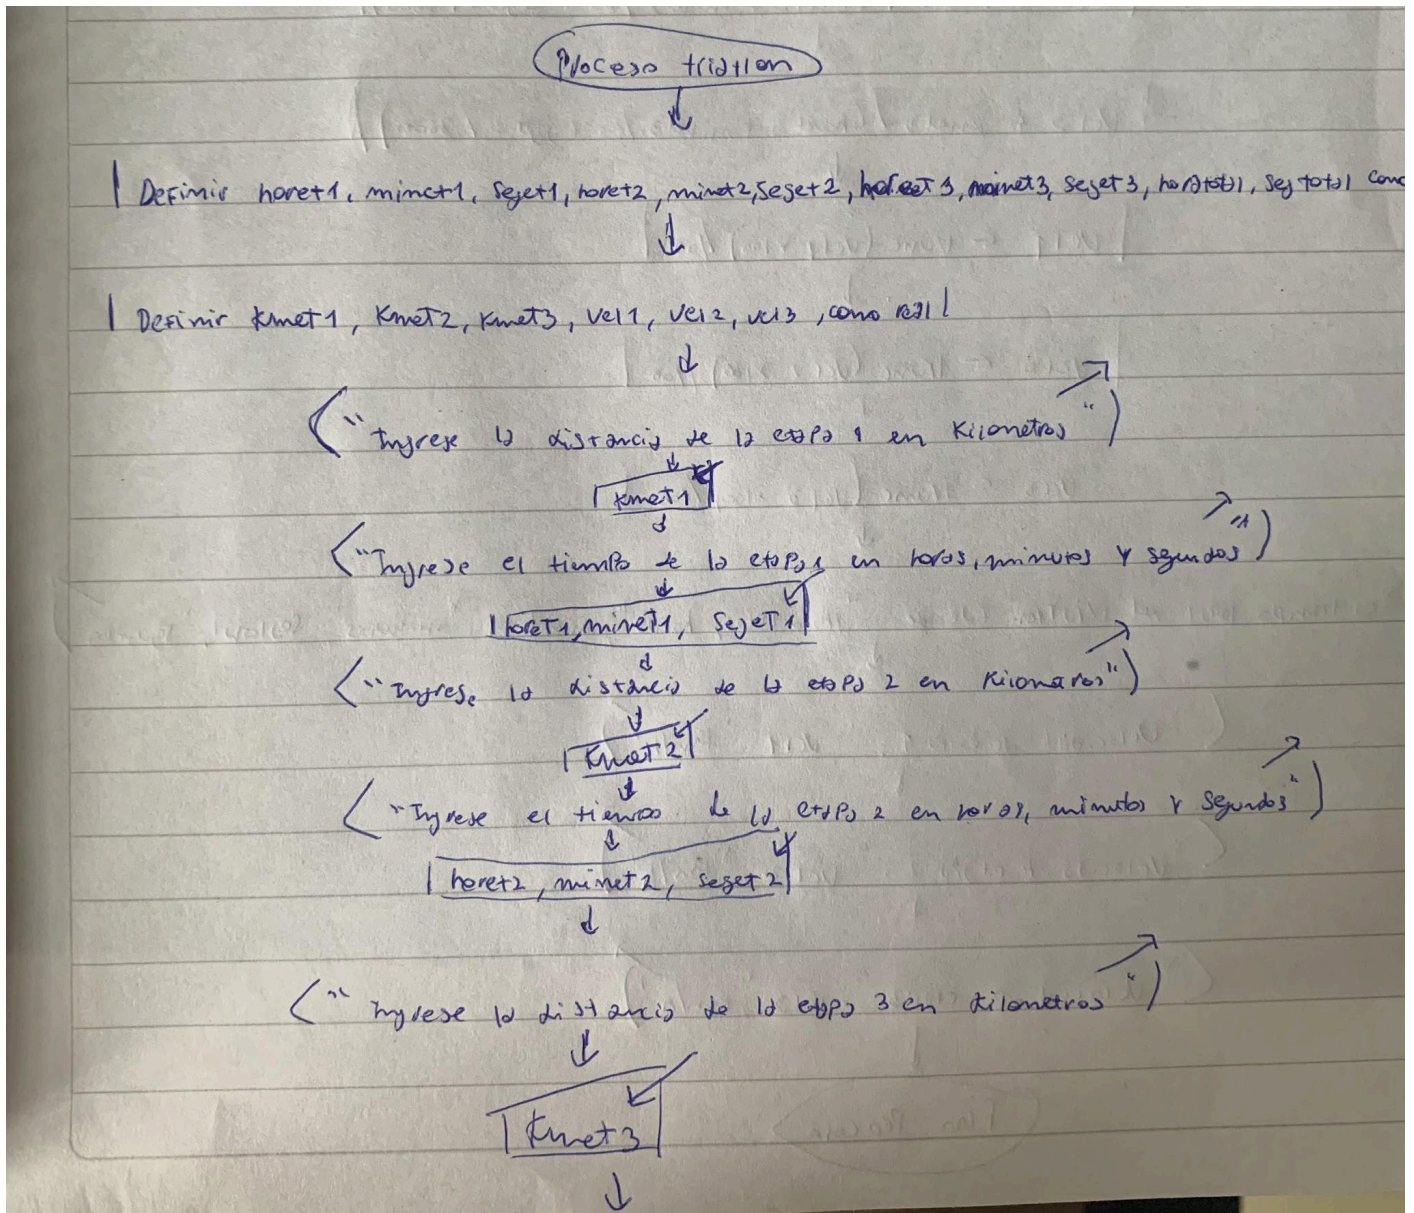 Proceso triatlon
Definir horet1, minet1, seget1, horet2, minet2, seget2, horeet3, minet3, seget3, horatotal, segtotal como
Definir kmet1, kmet2, kmet3, vel1, vel2, vel3, como real
"Ingrese la distancia de la etapa 1 en Kilometros"
kmet1
"Ingrese el tiempo de la etapa 1 en horas, minutos y segundos"
horet1, minet1, seget1
"Ingrese la distancia de la etapa 2 en Kilometros"
Kmet2
"Ingrese el tiempo de la etapa 2 en horas, minutos y segundos"
horet2, minet2, seget2
"Ingrese la distancia de la etapa 3 en kilometros"
Kmet3